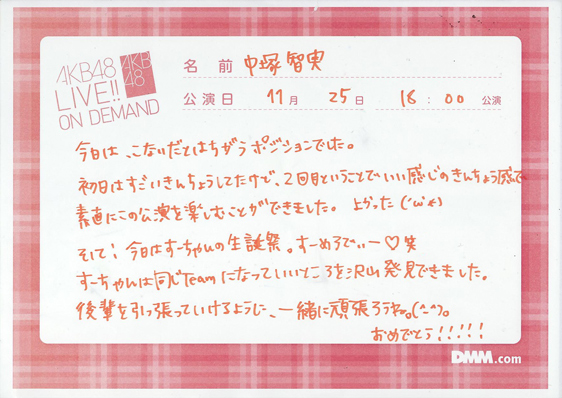 AKB48
LIVE!!
ON DEMAND
AKB
48
名 前 中塚智実
公演日 11月 25日 18:00 公演
今日は、こないだとはちがうポジションでした。
初日はすごいきんちょうしてたけど、2回目ということでいい感じのきんちょう感で
素直にこの公演を楽しむことができました。よかった(´ω`*)
そして!今日はすーちゃんの生誕祭。すーめろでぃー♡笑
すーちゃんは同じTeamになっていいところを沢山発見できました。
後輩を引っ張っていけるように、一緒に頑張ろうね。(^-^)。
おめでとう!!!!!
DMM.com